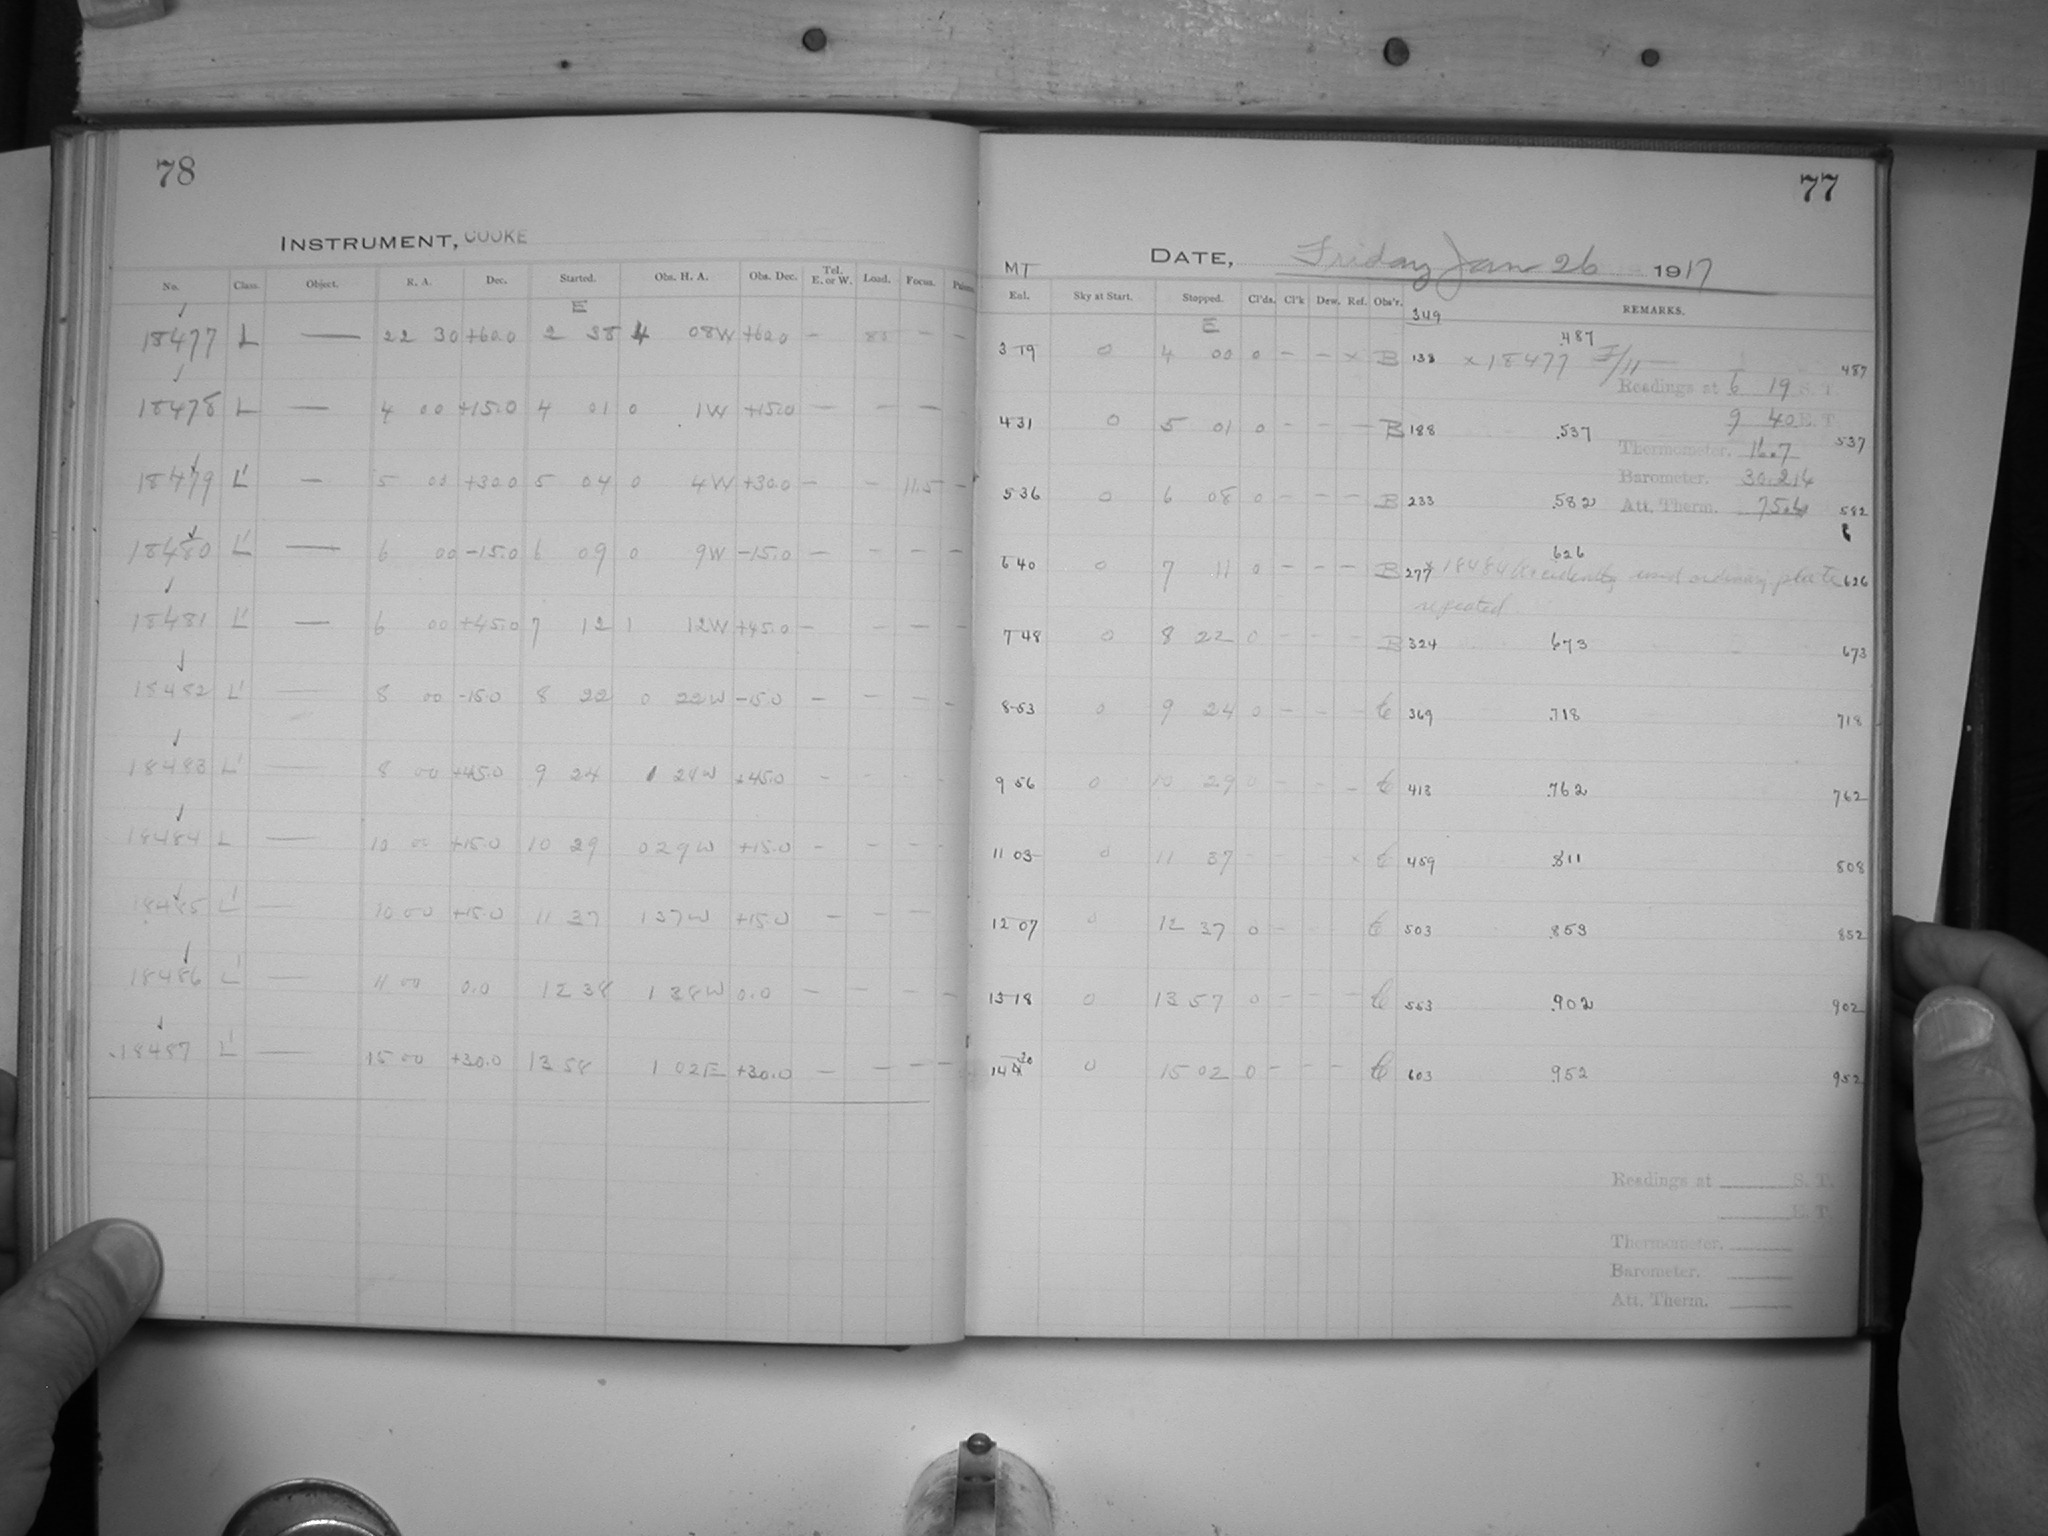 78
INSTRUMENT, COOKE
No. Class. Object. R. A. Dec. Started. Obs. H. A. Obs. Dec. Tel. E. or W. Load. Focus.
E
18477 L — 22 30 +60.0 2 38 4 08W +60.0 — — —
18478 L — 4 00 +15.0 4 01 0 1W +15.0 — — —
18479 L' — 5 00 +30.0 5 04 0 4W +30.0 — — 11.5 —
18480 L' — 6 00 -15.0 6 09 0 9W -15.0 — — — —
18481 L' — 6 00 +45.0 7 12 1 12W +45.0 — — — —
18482 L' — 8 00 -15.0 8 22 0 22W -15.0 — — — —
18483 L' — 8 00 +45.0 9 24 1 24W +45.0 — — —
18484 L — 10 00 +15.0 10 29 0 29W +15.0 — — —
18485 L' — 10 00 +15.0 11 37 1 37W +15.0 — — —
18486 L' — 11 00 0.0 12 38 1 38W 0.0 — — — —
18487 L' — 15 00 +30.0 13 58 1 02E +30.0 — — — —
77
DATE, Friday Jan 26 1917
MT
Enl. Sky at Start. Stopped. Cl'ds. Cl'k Dew. Ref. Obs'r. REMARKS.
E 349
3 19 0 4 00 0 — — x B 138 x 18477 F/11 .487 487
Readings at 6 19 S. T.
9 40 E. T.
4 31 0 5 01 0 — — — B 188 .537 537
Thermometer. 16.7
Barometer. 30.214
5 36 0 6 08 0 — — — B 233 .582 Att. Therm. 75.4 582
6 40 0 7 11 0 — — — B 277 .626 x 18484 Accidently used ordinary plate 626
repeated
7 48 0 8 22 0 B 324 .673 673
8 53 0 9 24 0 — — — 369 .718 718
9 56 0 10 29 0 — — — 413 .762 762
11 03 0 11 37 — — — x 459 .811 808
12 07 0 12 37 0 — 503 .853 852
13 18 0 13 57 0 — — — 553 .902 902
14 20 0 15 02 0 — — — 603 .952 952
Readings at S. T.
E. T.
Thermometer.
Barometer.
Att. Therm.